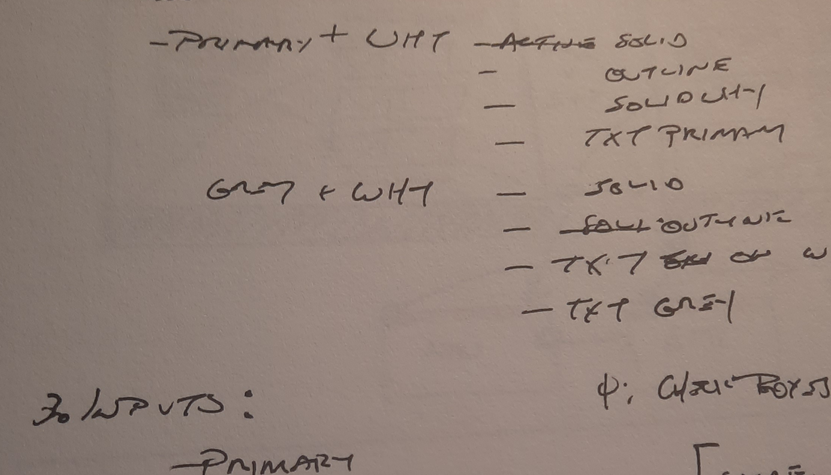 - PRIMARY + WHT - ACTIVE SOLID
- OUTLINE
- SOLID WHT
- TXT PRIMARY
GREY + WHT - SOLID
- OUTLINE
- TXT ON W
- TXT GREY
3. INPUTS:
4. CHECK BOXES
- PRIMARY